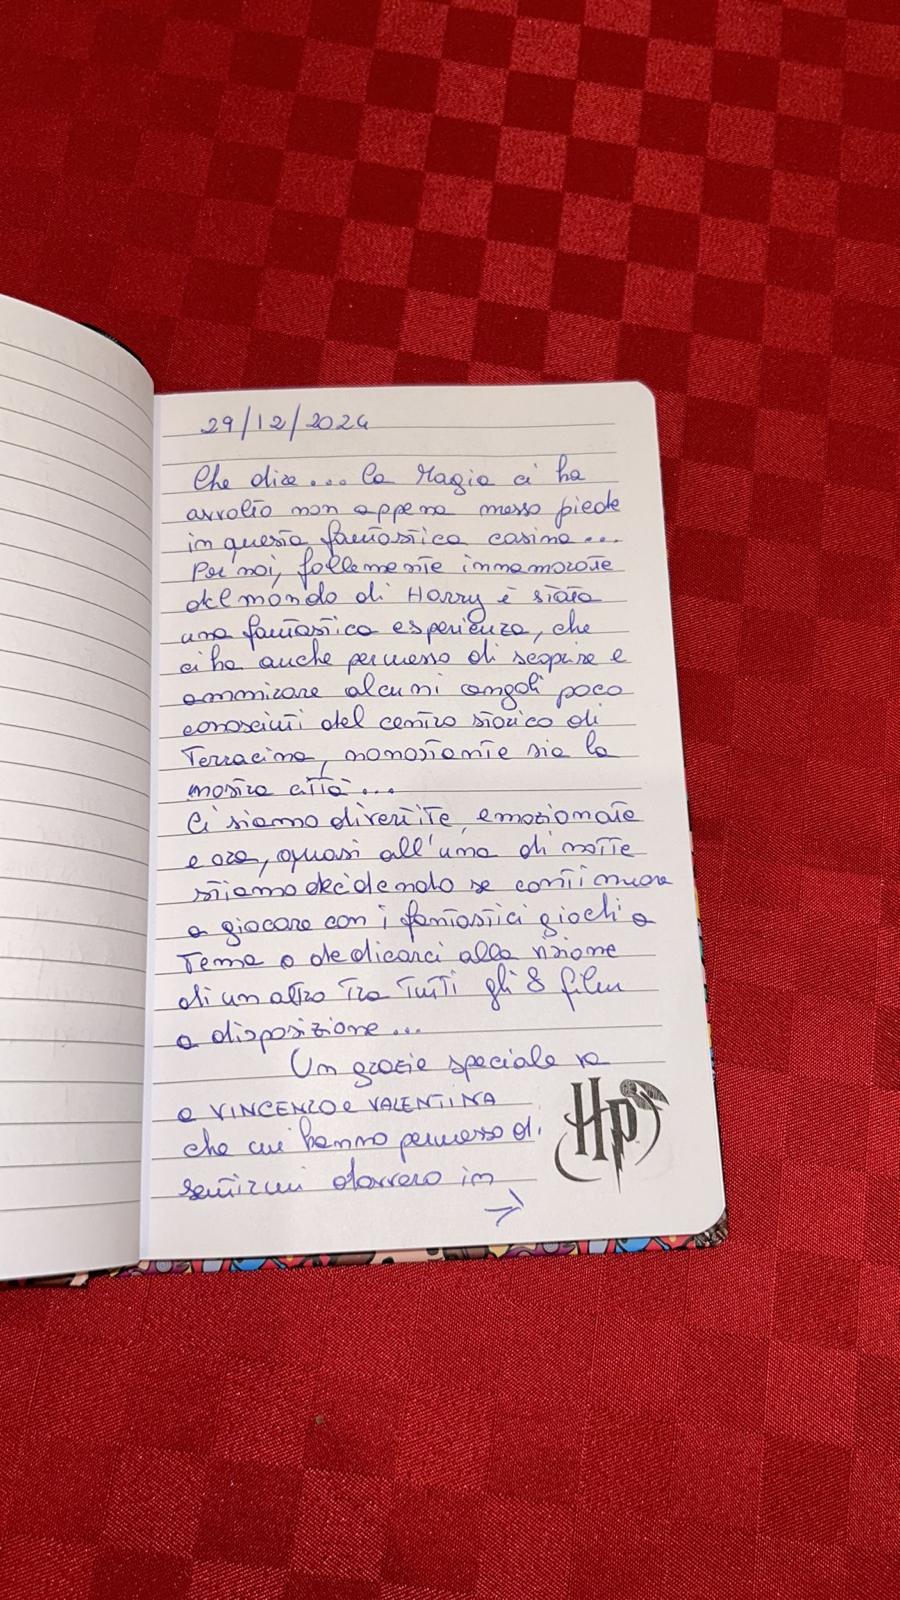 29/12/2024
Che dire... la Magia ci ha
avvolto non appena messo piede
in questa fantastica casina...
Per noi, follemente innamorate
del mondo di Harry è stata
una fantastica esperienza, che
ci ha anche permesso di scoprire e
ammirare alcuni angoli poco
conosciuti del centro storico di
Terracina, nonostante sia la
nostra città...
Ci siamo divertite, emozionate
e ora, quasi all'una di notte
stiamo decidendo se continuare
a giocare con i fantastici giochi a
tema o dedicarci alla visione
di un altro tra tutti gli 8 film
a disposizione...
Un grazie speciale va
a VINCENZO e VALENTINA
che ci hanno permesso di
sentirci davvero in
HP